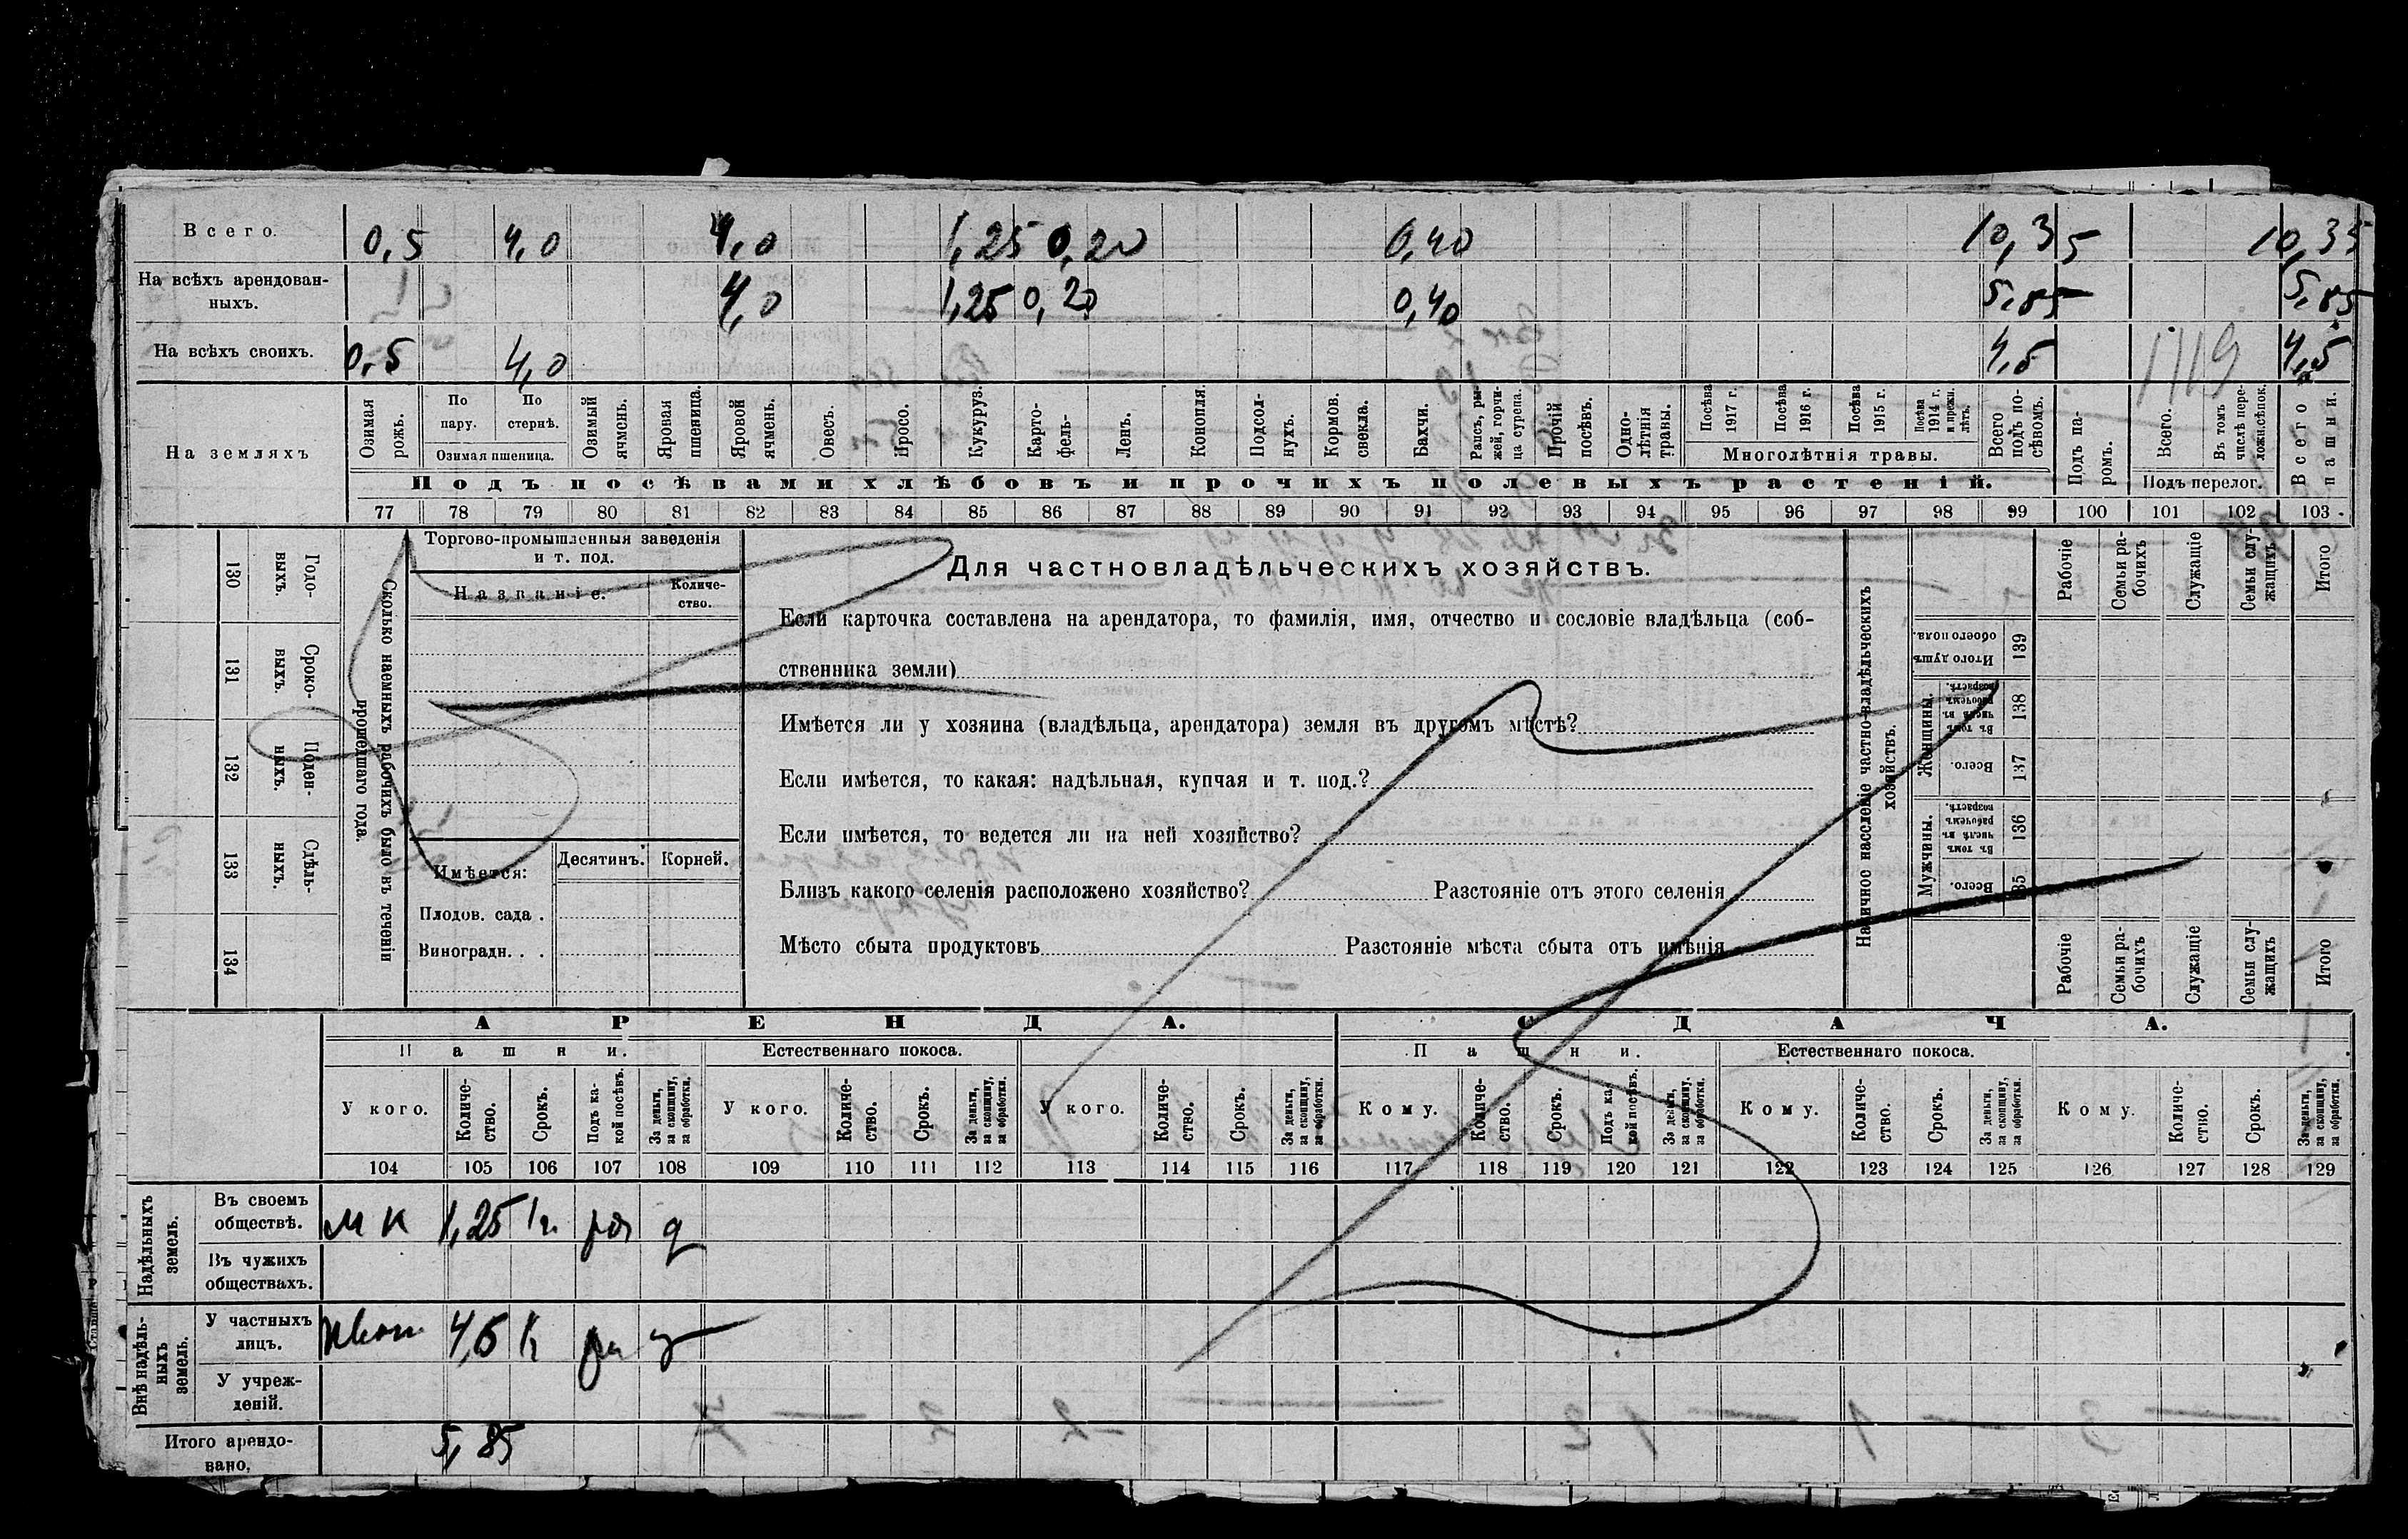 Всего. 0,5 4,0 4,0 1,25 0,20 0,40 10,35 10,35
На всѣхъ арендован-
ныхъ. 4,0 1,25 0,20 0,40 5,85 5,85
На всѣхъ своихъ. 0,5 4,0 4,5 1119 4,5
На земляхъ
Озимая рожь.
По пару.
По стернѣ.
Озимая пшеница.
Озимый ячмень.
Яровая пшеница.
Яровой ячмень.
Овесъ.
Просо.
Кукуруз.
Карто-
фель-
Ленъ.
Конопля.
Подсол-
нухъ.
Кормов. свекла.
Бахчи.
Рапсъ, ры-
жей, горчи-
ца сурепа.
Прочій посѣвъ.
Одно-
лѣтнія травы.
Посѣва 1917 г.
Посѣва 1916 г.
Посѣва 1915 г.
Посѣва 1914 г. и прежн. лѣтъ.
Многолѣтнія травы.
Всего подъ по-
сѣвомъ.
Подъ па-
ромъ.
Всего.
Въ томъ числѣ пере-
ложн.сѣнок.
Подъ перелог.
Всего пашни.
Подъ посѣвами хлѣбовъ и прочихъ полевыхъ растеній.
77 78 79 80 81 82 83 84 85 86 87 88 89 90 91 92 93 94 95 96 97 98 99 100 101 102 103
130 Годо-
выхъ.
131 Сроко-
выхъ.
132 Поден-
ныхъ.
133 Сдѣль-
ныхъ.
134
Сколько наемныхъ рабочихъ было въ теченіи
прошедшаго года.
Торгово-промышленныя заведенія
и т. под.
Названіе.
Количе-
ство.
Имѣется:
Десятинъ. Корней.
Плодов. сада .
Виноградн. . .
Для частновладѣльческихъ хозяйствъ.
Если карточка составлена на арендатора, то фамилія, имя, отчество и сословіе владѣльца (соб-
ственника земли)
Имѣется ли у хозяина (владѣльца, арендатора) земля въ другомъ мѣстѣ?
Если имѣется, то какая: надѣльная, купчая и т. под.?
Если имѣется, то ведется ли на ней хозяйство?
Близъ какого селенія расположено хозяйство? Разстояніе отъ этого селенія
Мѣсто сбыта продуктовъ Разстояніе мѣста сбыта отъ имѣнія
Наличное населеніе частно-владѣльческихъ
хозяйствъ.
Рабочіе
Семьи ра-
бочихъ
Служащіе
Семьи слу-
жащихъ
Итого
Итого душъ обоего пола. 139
Женщины.
Въ томъ числѣ въ рабочемъ возрастѣ. 138
Всего. 137
Мужчины.
Въ томъ числѣ въ рабочемъ возрастѣ. 136
Всего. 135
Рабочіе
Семьи ра-
бочихъ
Служащіе
Семьи слу-
жащихъ
Итого
АРЕНДА. СДАЧА.
Пашни. Естественнаго покоса. Пашни. Естественнаго покоса.
У кого.
Количе-
ство.
Срокъ.
Подъ ка-
кой посѣвъ.
За деньги, за скопщину, за обработки.
У кого.
Количе-
ство.
Срокъ.
За деньги, за скопщину, за обработки.
У кого.
Количе-
ство.
Срокъ.
За деньги, за скопщину, за обработки.
Кому.
Количе-
ство.
Срокъ.
Подъ ка-
кой посѣвъ.
За деньги, за скопщину, за обработки.
Кому.
Количе-
ство.
Срокъ.
За деньги, за скопщину, за обработки.
Кому.
Количе-
ство.
Срокъ.
За деньги, за скопщину, за обработки.
104 105 106 107 108 109 110 111 112 113 114 115 116 117 118 119 120 121 122 123 124 125 126 127 128 129
Надѣльныхъ
земель.
Въ своемъ
обществѣ. м к 1,25 1г
Въ чужихъ
обществахъ.
Внѣ надѣль-
ныхъ
земель.
У частныхъ
лицъ.
У учреж-
деній.
Итого арендо-
вано. 5,85